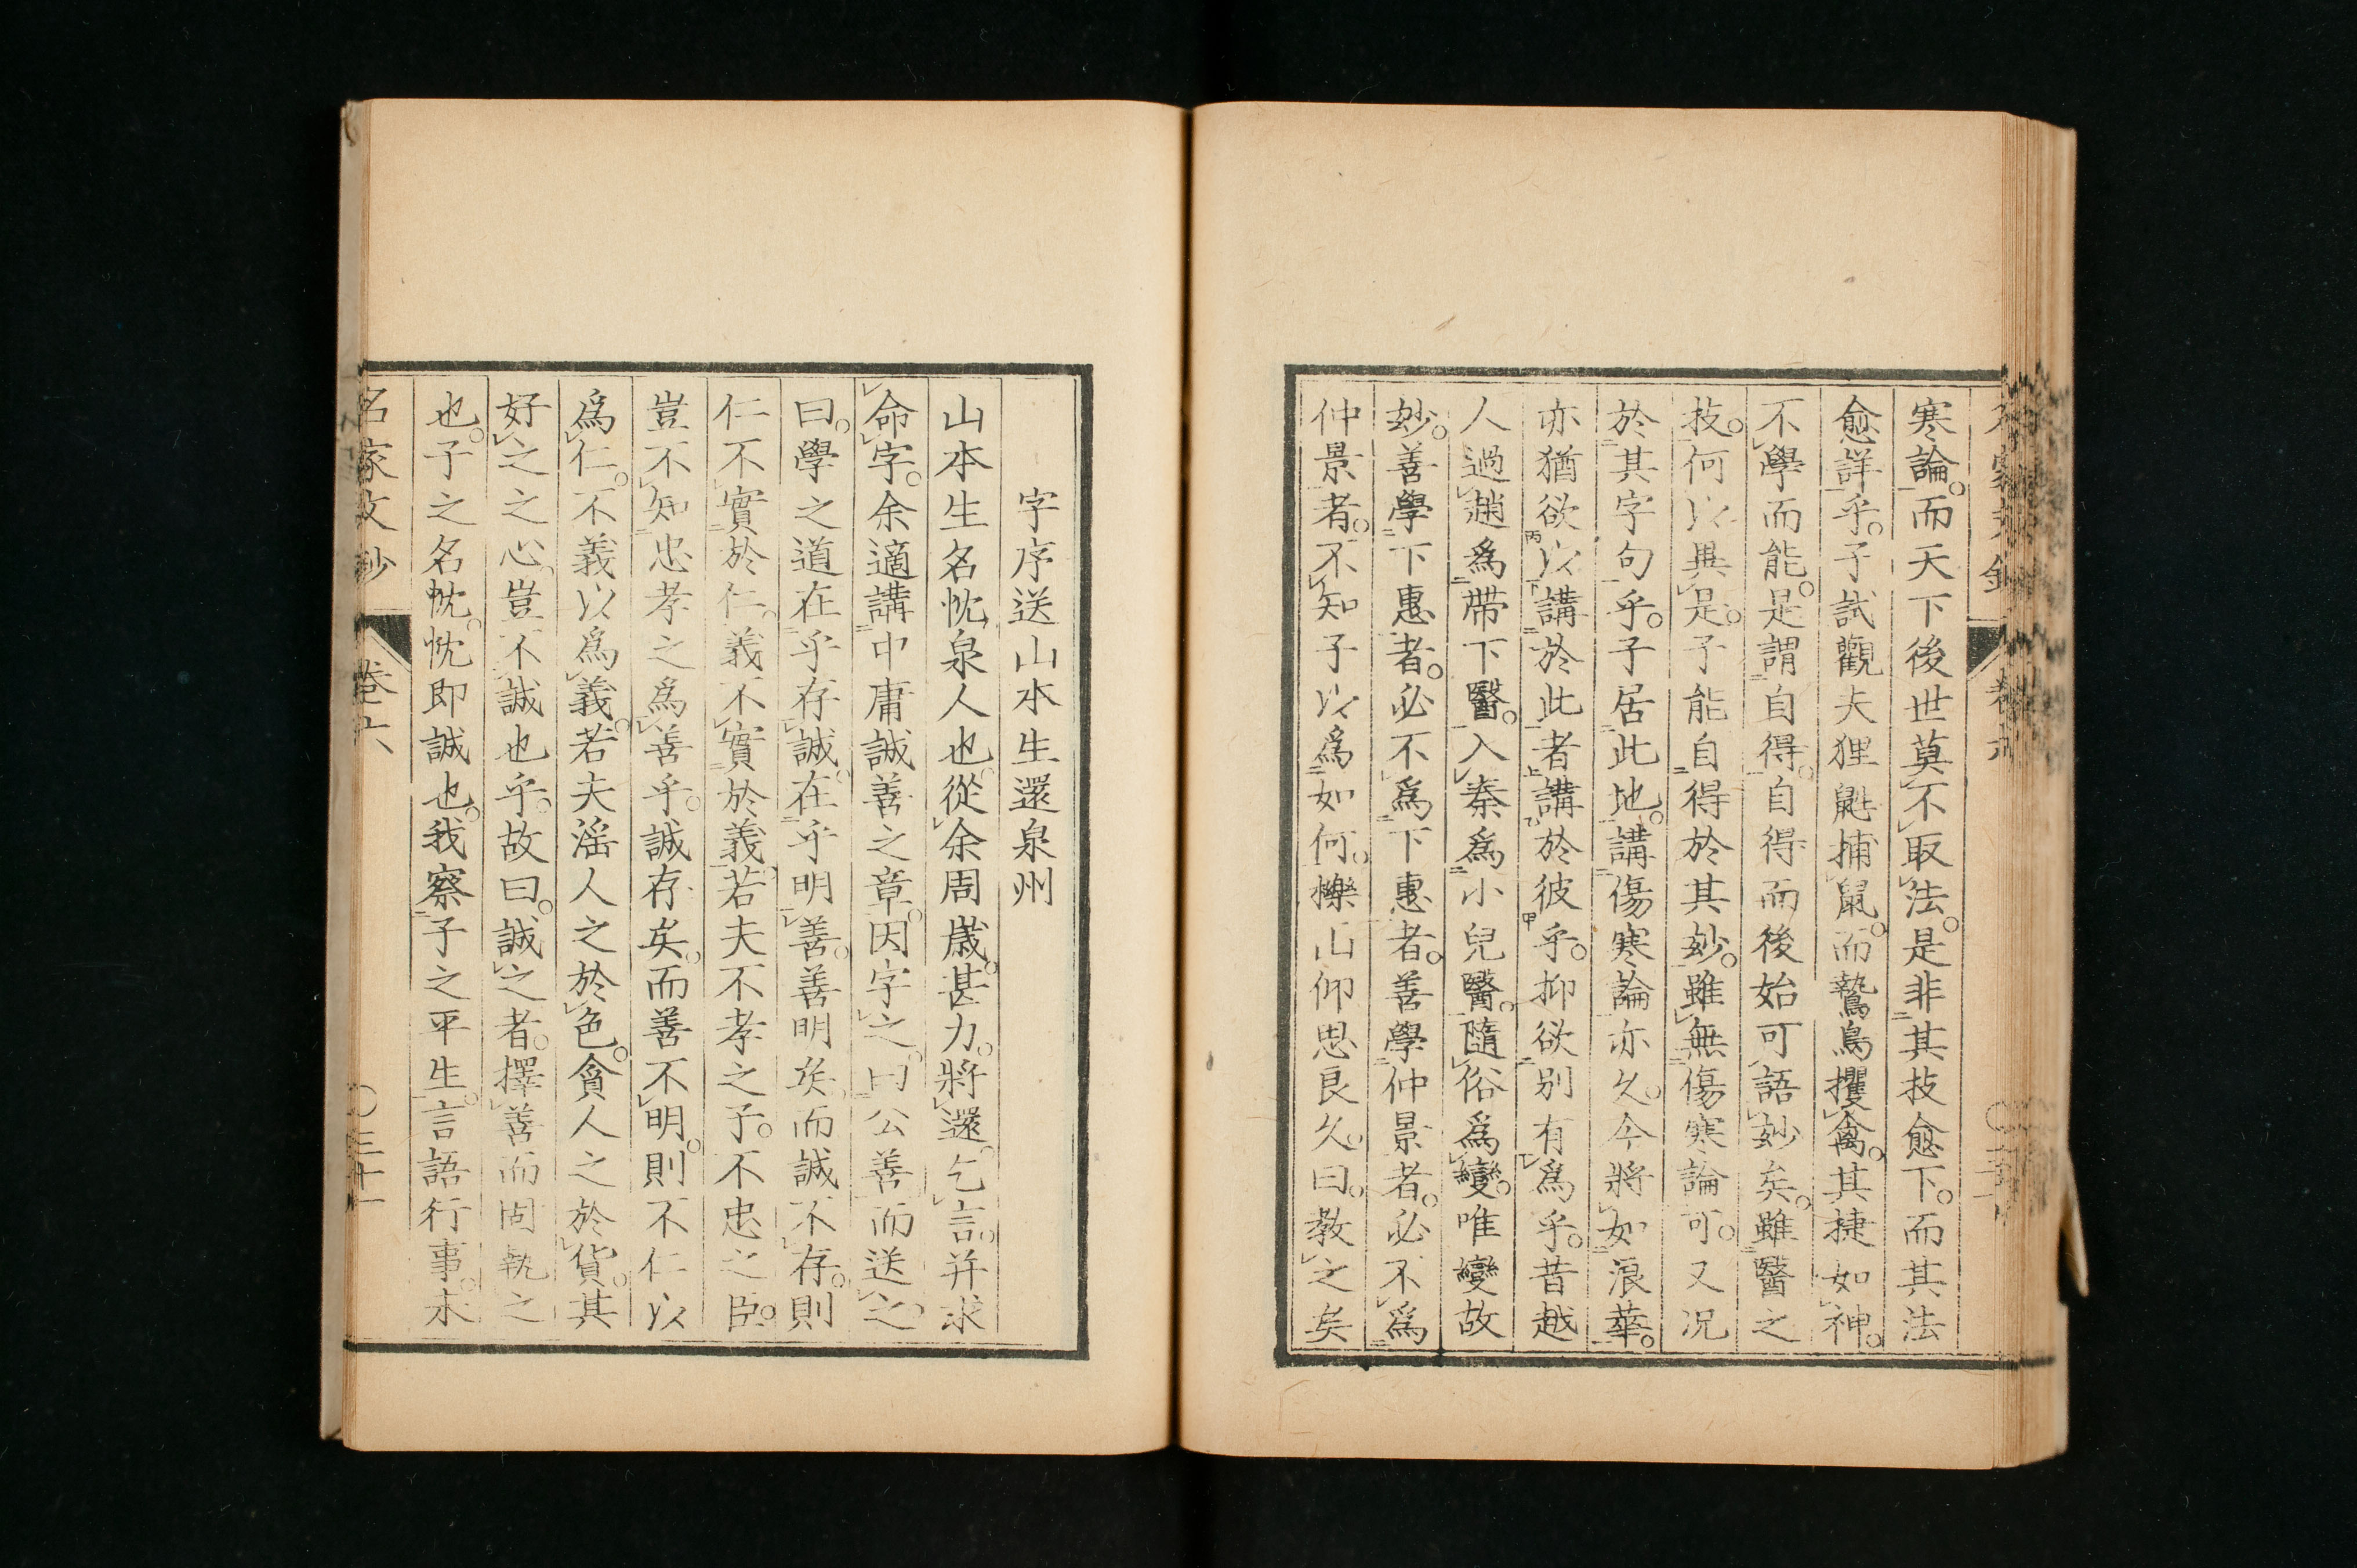 寒論。而天下後世莫不取法。是非其技愈下。而其法
愈詳乎。子試觀夫狸鼪捕鼠。而鷙鳥攫禽。其捷如神。
不學而能。是謂自得。自得而後始可語妙矣。雖醫之
技。何以異是。子能自得於其妙。雖無傷寒論可。又況
於其字句乎。子居此地。講傷寒論亦久。今將如浪華。
亦猶欲以講於此者講於彼乎。抑欲別有爲乎。昔越
人過趙爲帶下醫。入秦爲小兒醫。隨俗爲變。唯變故
妙。善學下惠者。必不爲下惠者。善學仲景者。必不爲
仲景者。不知子以爲如何。櫟山仰思良久。曰。教之矣
字序送山本生還泉州
山本生名忱。泉人也。從余周歲。甚力。將還。乞言。并求
命字。余適講中庸誠善之章。因字之。曰公善而送之。
曰。學之道在乎存誠。在乎明善。善明矣。而誠不存。則
仁不實於仁。義不實於義。若夫不孝之子。不忠之臣。
豈不知忠孝之爲善乎。誠存矣。而善不明。則不仁以
爲仁。不義以爲義。若夫淫人之於色。貪人之於貨。其
好之之心。豈不誠也乎。故曰。誠之者。擇善而固執之
也。子之名忱。忱即誠也。我察子之平生。言語行事。未
名家文鈔 卷六 〇三十一